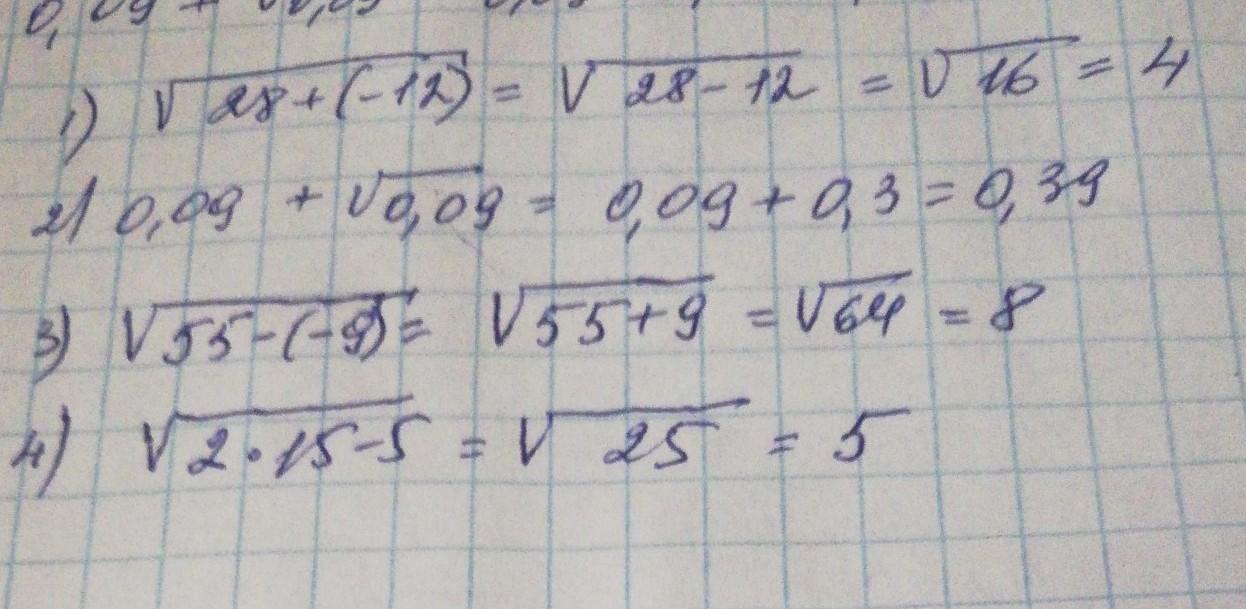 1) √28+(-12) = √28-12 = √16 = 4
2) 0,09 + √0,09 = 0,09 + 0,3 = 0,39
3) √55-(-9) = √55+9 = √64 = 8
4) √2·15-5 = √25 = 5